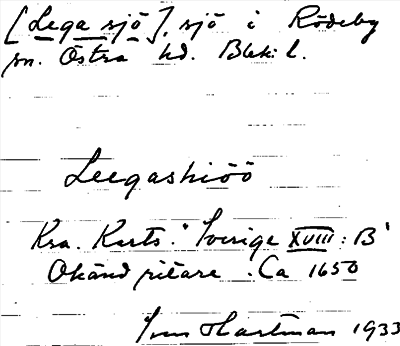 [Lega sjö], sjö i Rödeby
sn. Östra hd. Blek. l.
Leegashiöö
Kra. Kart. "Sverige XVIII: B"
Okänd ritare. Ca 1650
Hartman 1933